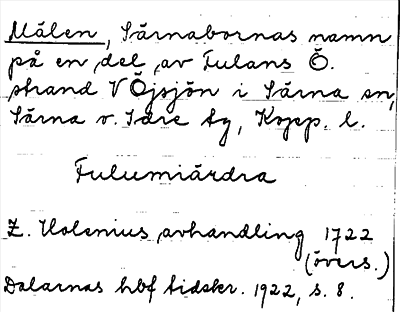 Målen, Särnabornas namn
på en del av Fulans Ö.
strand V Öjsjön i Särna sn,
Särna o. Idre tg, Kopp. l.
Fulumiärdra
Z. Holenius avhandling 1722
(övers.)
Dalarnas hbf tidskr. 1922, s. 8.